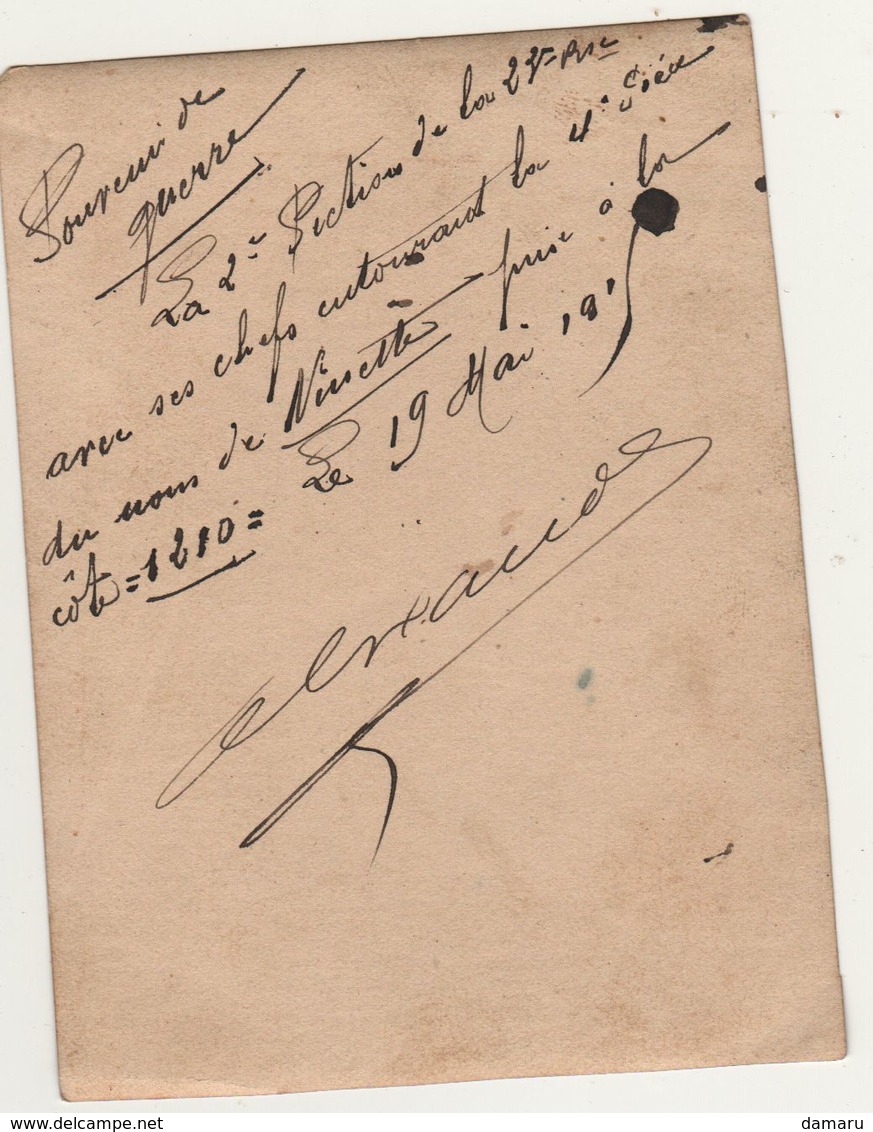 Souvenir de
guerre
La 2e Section de la 22e Bie
avec ses chefs entourant la 4e Pièce
du nom de Ninette prise à la
côte = 1210 = Le 19 Mai 191
delcampe.net
damaru